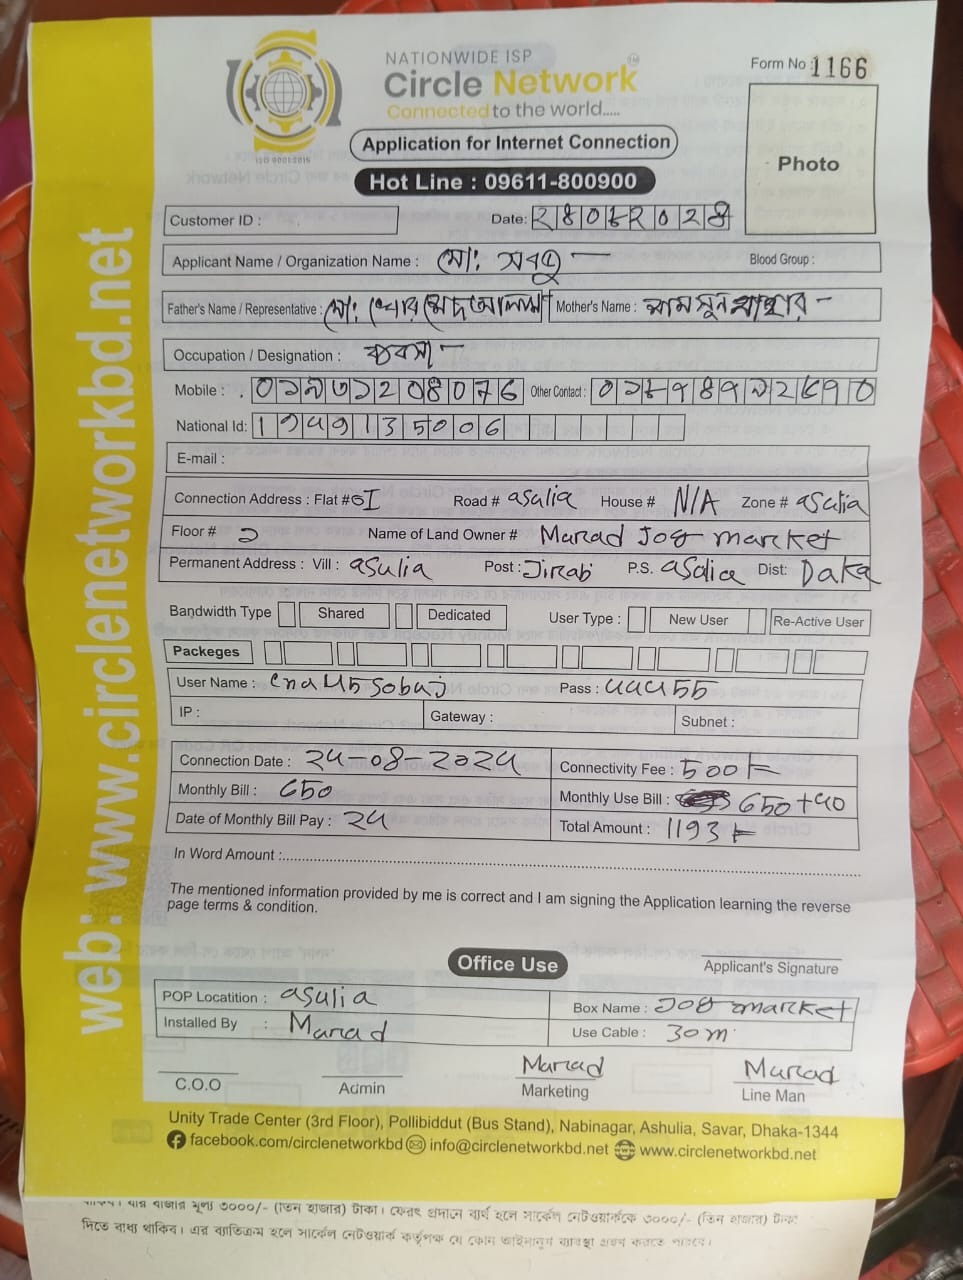 NATIONWIDE ISP
Circle Network
Connected to the world.....
ISO 9001:2015
Form No : 1166
Photo
Application for Internet Connection
Hot Line : 09611-800900
Customer ID :
Date:
Applicant Name / Organization Name : মো: সবুজ
Blood Group :
Father's Name / Representative : মো:
Mother's Name :
Occupation / Designation : ব্যবসা
Mobile :
Other Contact :
National Id: 1949135006
E-mail :
Connection Address : Flat # Road # asulia House # N/A Zone # asulia
Floor # 2 Name of Land Owner # Marad Jog market
Permanent Address : Vill : asulia Post : Jirab P.S. asolia Dist: Daka
Bandwidth Type Shared Dedicated User Type : New User Re-Active User
Packeges
User Name : Pass :
IP : Gateway : Subnet :
Connection Date : 24-08-2024 Connectivity Fee : 500
Monthly Bill : 650 Monthly Use Bill : 650+40
Date of Monthly Bill Pay : 24 Total Amount : 1193
In Word Amount :
The mentioned information provided by me is correct and I am signing the Application learning the reverse
page terms & condition.
Office Use
Applicant's Signature
POP Locatition : asulia Box Name : Jog market
Installed By : Marad Use Cable : 30m
Marad Marad
C.O.O Admin Marketing Line Man
Unity Trade Center (3rd Floor), Pollibiddut (Bus Stand), Nabinagar, Ashulia, Savar, Dhaka-1344
facebook.com/circlenetworkbd info@circlenetworkbd.net www.circlenetworkbd.net
web: www.circlenetworkbd.net
যার বাজার মূল্য ৩০০০/- (তিন হাজার) টাকা। ফেরৎ প্রদানে ব্যর্থ হলে সার্কেল নেটওয়ার্ককে ৩০০০/- (তিন হাজার) টাকা
দিতে বাধ্য থাকিব। এর ব্যতিক্রম হলে সার্কেল নেটওয়ার্ক কর্তৃপক্ষ যে কোন আইনানুগ ব্যবস্থা গ্রহণ করতে পারবে।